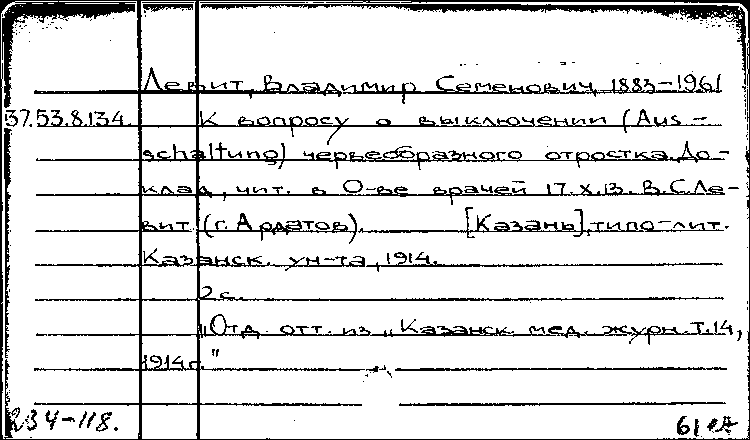 Левит, Владимир Семенович, 1883-1961
37.53.8.134. К вопросу о выключении (Aus-
schaltung) червеобразного отростка. До-
клад, чит. в О-ве врачей 17.X.13. В.С.Ле-
вит (г. Ардатов). [Казань], типо-лит.
Казанск. ун-та, 1914.
2 с.
"Отд. отт. из "Казанск. мед. журн. Т.14,
1914 г."
234-118.
61